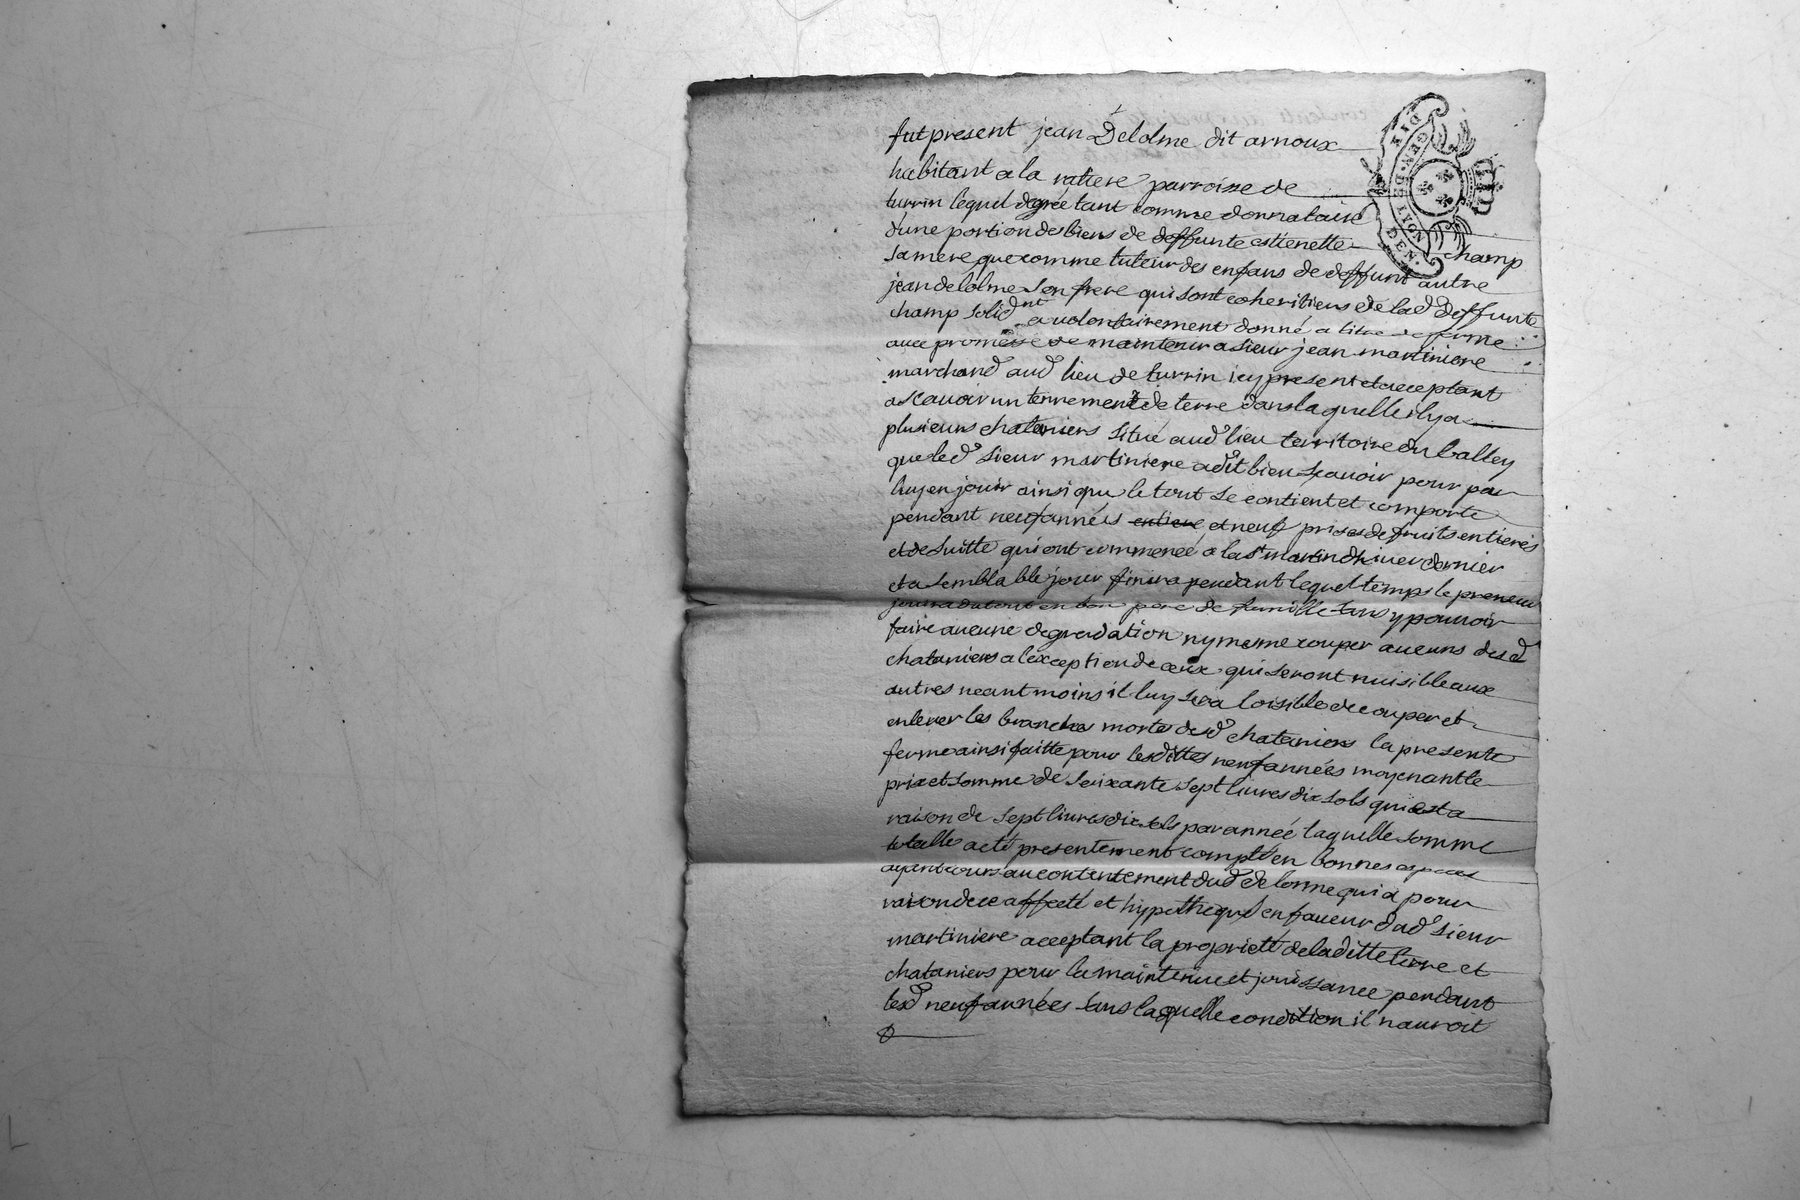 fut present jean Delolme dit arnoux
habitant a la ratiere parroisse de
turrin lequel degré tant comme donnataire
d'une portion des biens de deffunte estienette champ
sa mere que comme tuteur des enfans de deffunt autre
jean delolme son frere qui sont coheritiers de lad deffunte
champ solidnt a volontairement donné a titre de ferme
avec promesse de maintenir a sieur jean martiniere
marchand aud lieu de turrin icy present et acceptant
a scavoir un tenement de terre dans laquelle il y a
plusieurs chataniers situé aud lieu territoire du balley
que led sieur martiniere a dit bien scavoir pour par
luy en jouir ainsi que le tout se contient et comporte
pendant neuf années entiere et neuf prises de fruits entieres
et de suitte qui ont commencé a la st martin d'hiver dernier
et a semblable jour finira pendant lequel temps le preneur
jouira du tout en bon pere de famille sans y pouvoir
faire aucune degradation ny meme couper aucuns desd
chataniers a l'exception de ceux qui seront nuisible aux
autres neantmoins il luy sera loisible de couper et
enlever les branches mortes desd chataniers la presente
ferme ainsi faitte pour lesdittes neuf années moyenant le
prix et somme de soixante sept livres dix sols qui est a
raison de sept livres dix sols par année laquelle somme
totalle a eté presentement compté en bonnes especes
ayant cours au contentement dud delorme qui a pour
raison de ce affecté et hypothequé en faveur dud sieur
martiniere acceptant la proprieté de laditte terre et
chataniers pour la maintenue et jouissance pendant
lesd neuf années sans laquelle condition il n'auroit
GEN. DE LYON